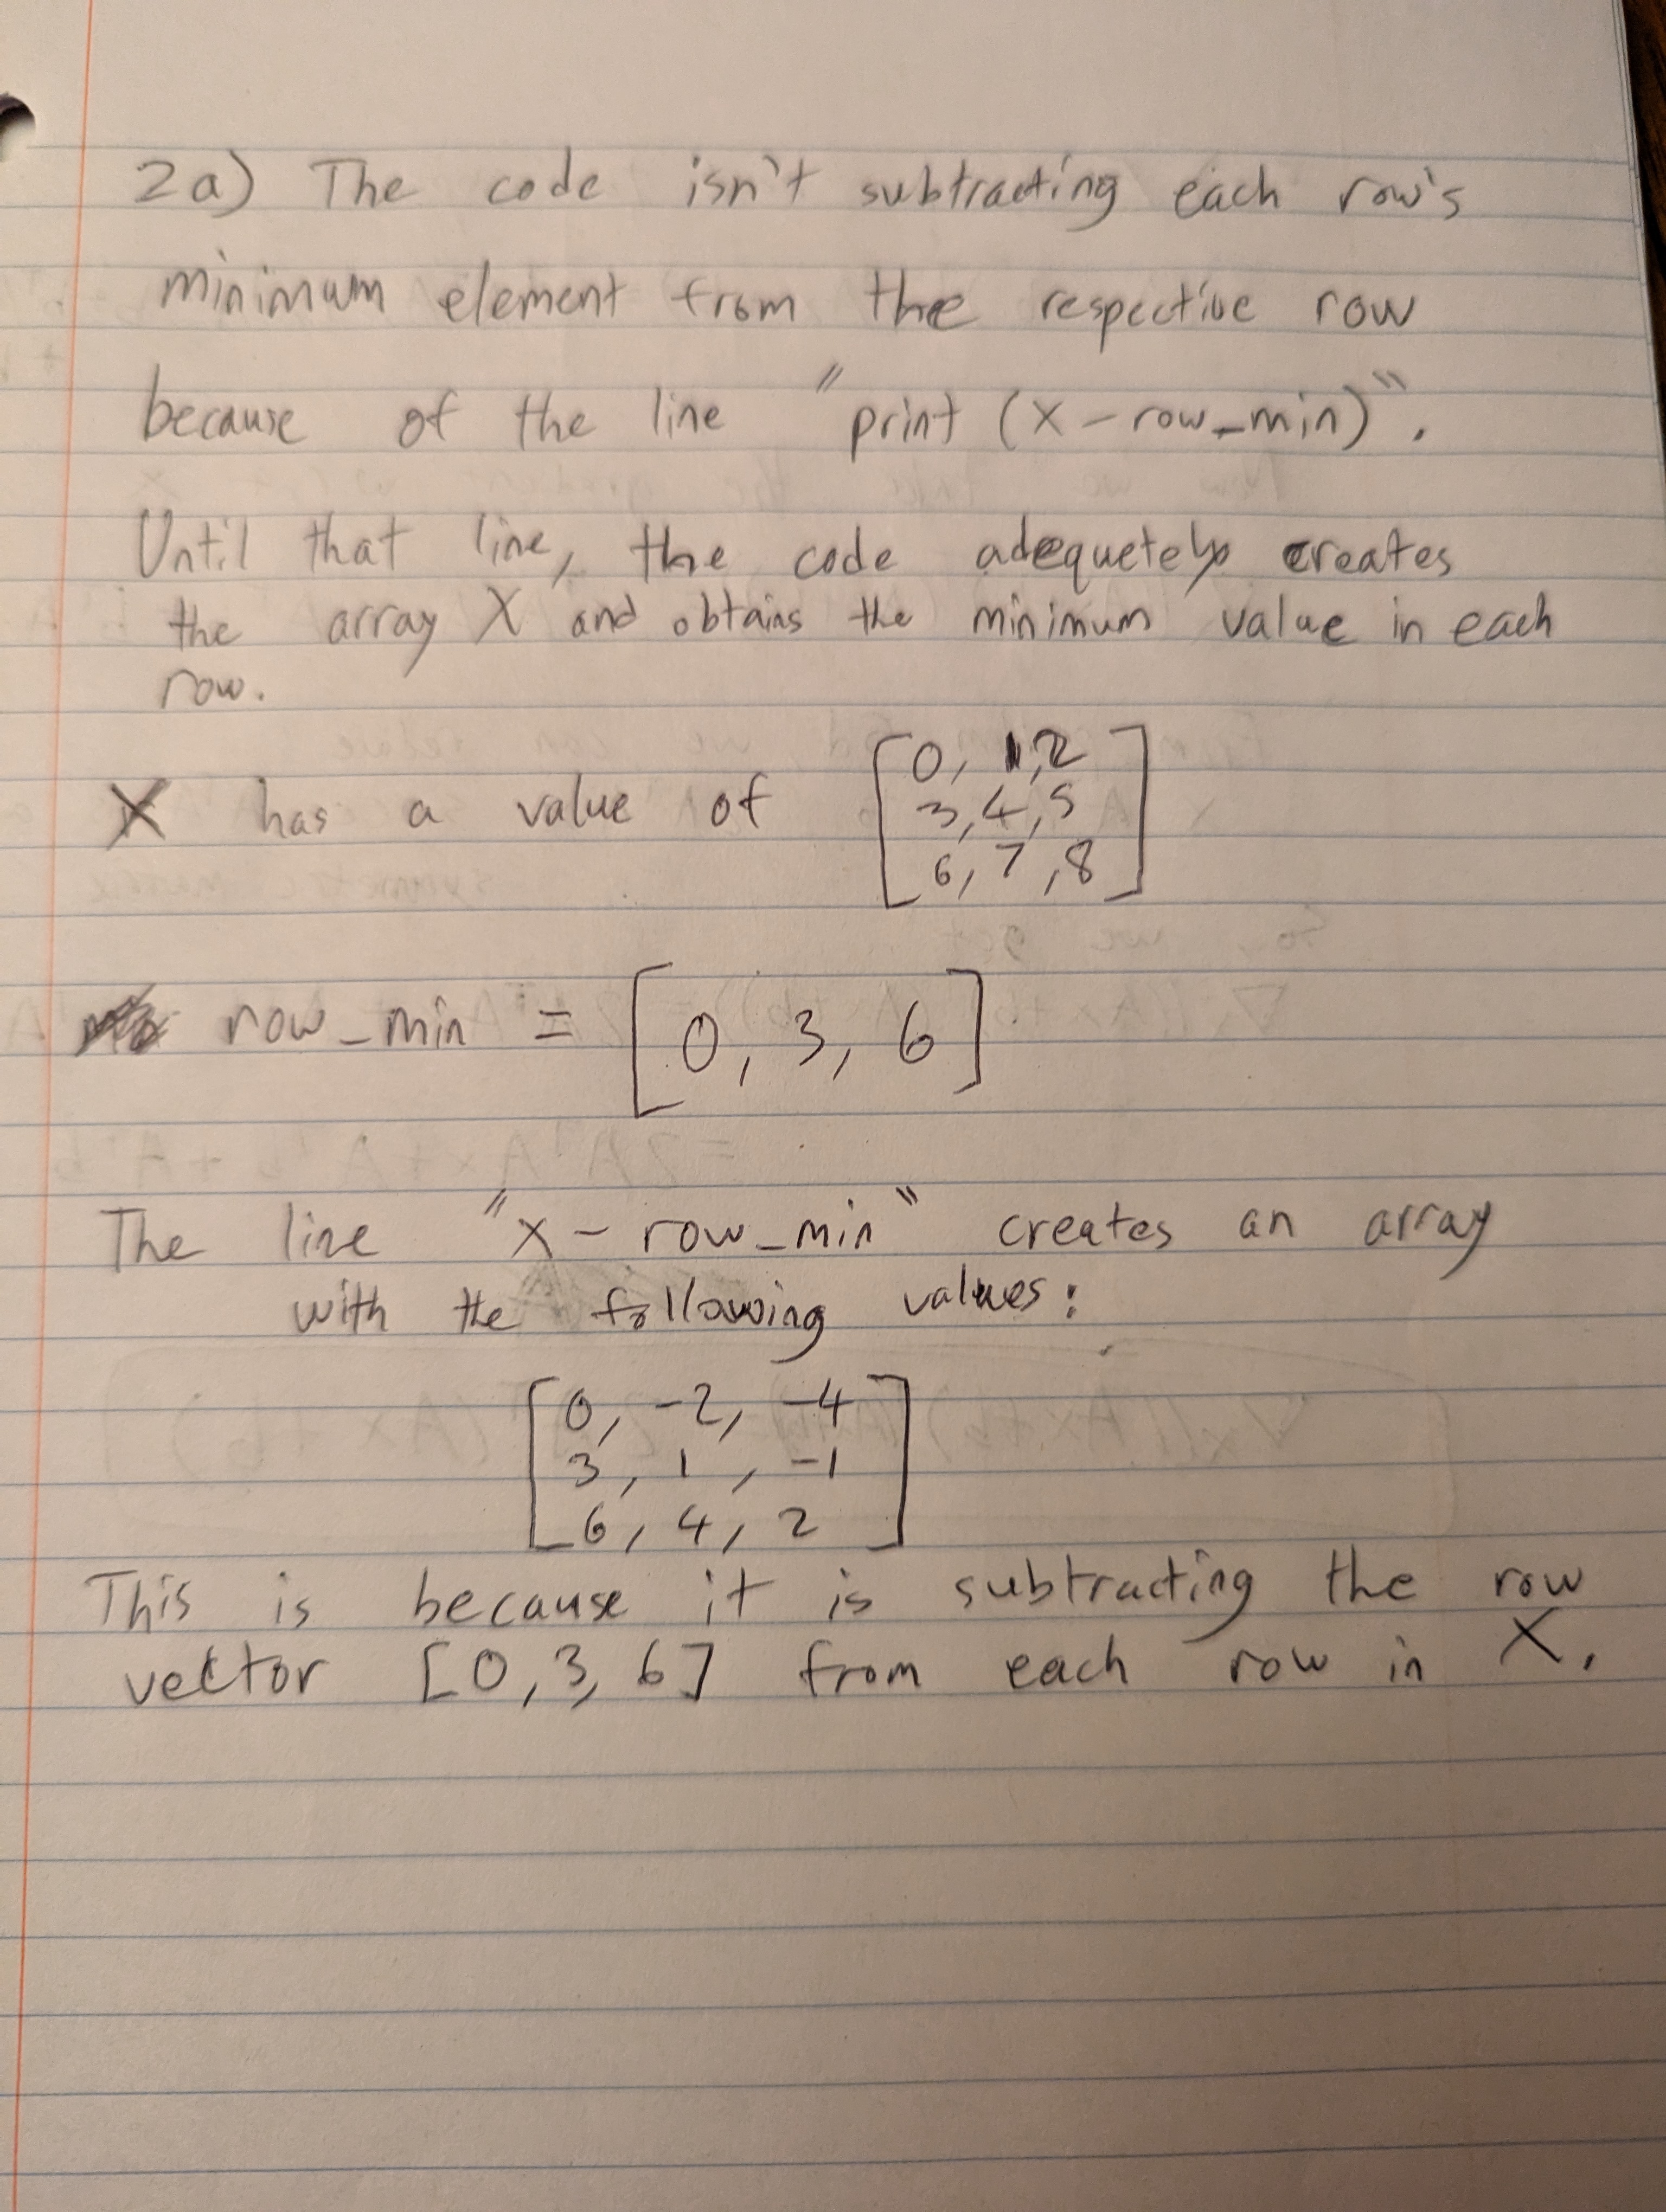 2a) The code isn't subtracting each row's
minimum element from the respective row
because of the line "print (x - row_min)".
Until that line, the code adequetely creates
the array X and obtains the minimum value in each
row.
X has a value of [0, 1, 2
3, 4, 5
6, 7, 8]
row_min = [0, 3, 6]
The line "x - row_min" creates an array
with the following values:
[0, -2, -4
3, 1, -1
6, 4, 2]
This is because it is subtracting the row
vector [0, 3, 6] from each row in X.